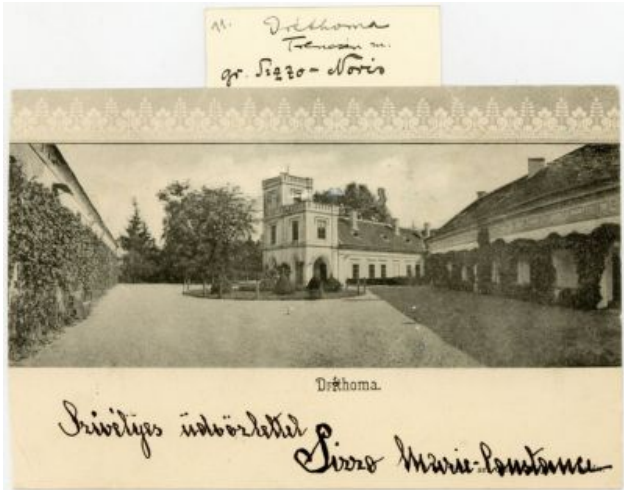 11. Dréthoma
Trencsén m.
gr. Sizzo-Noris
Dréthoma.
Szivélyes üdvözlettel
Sizzo Marie-Constance